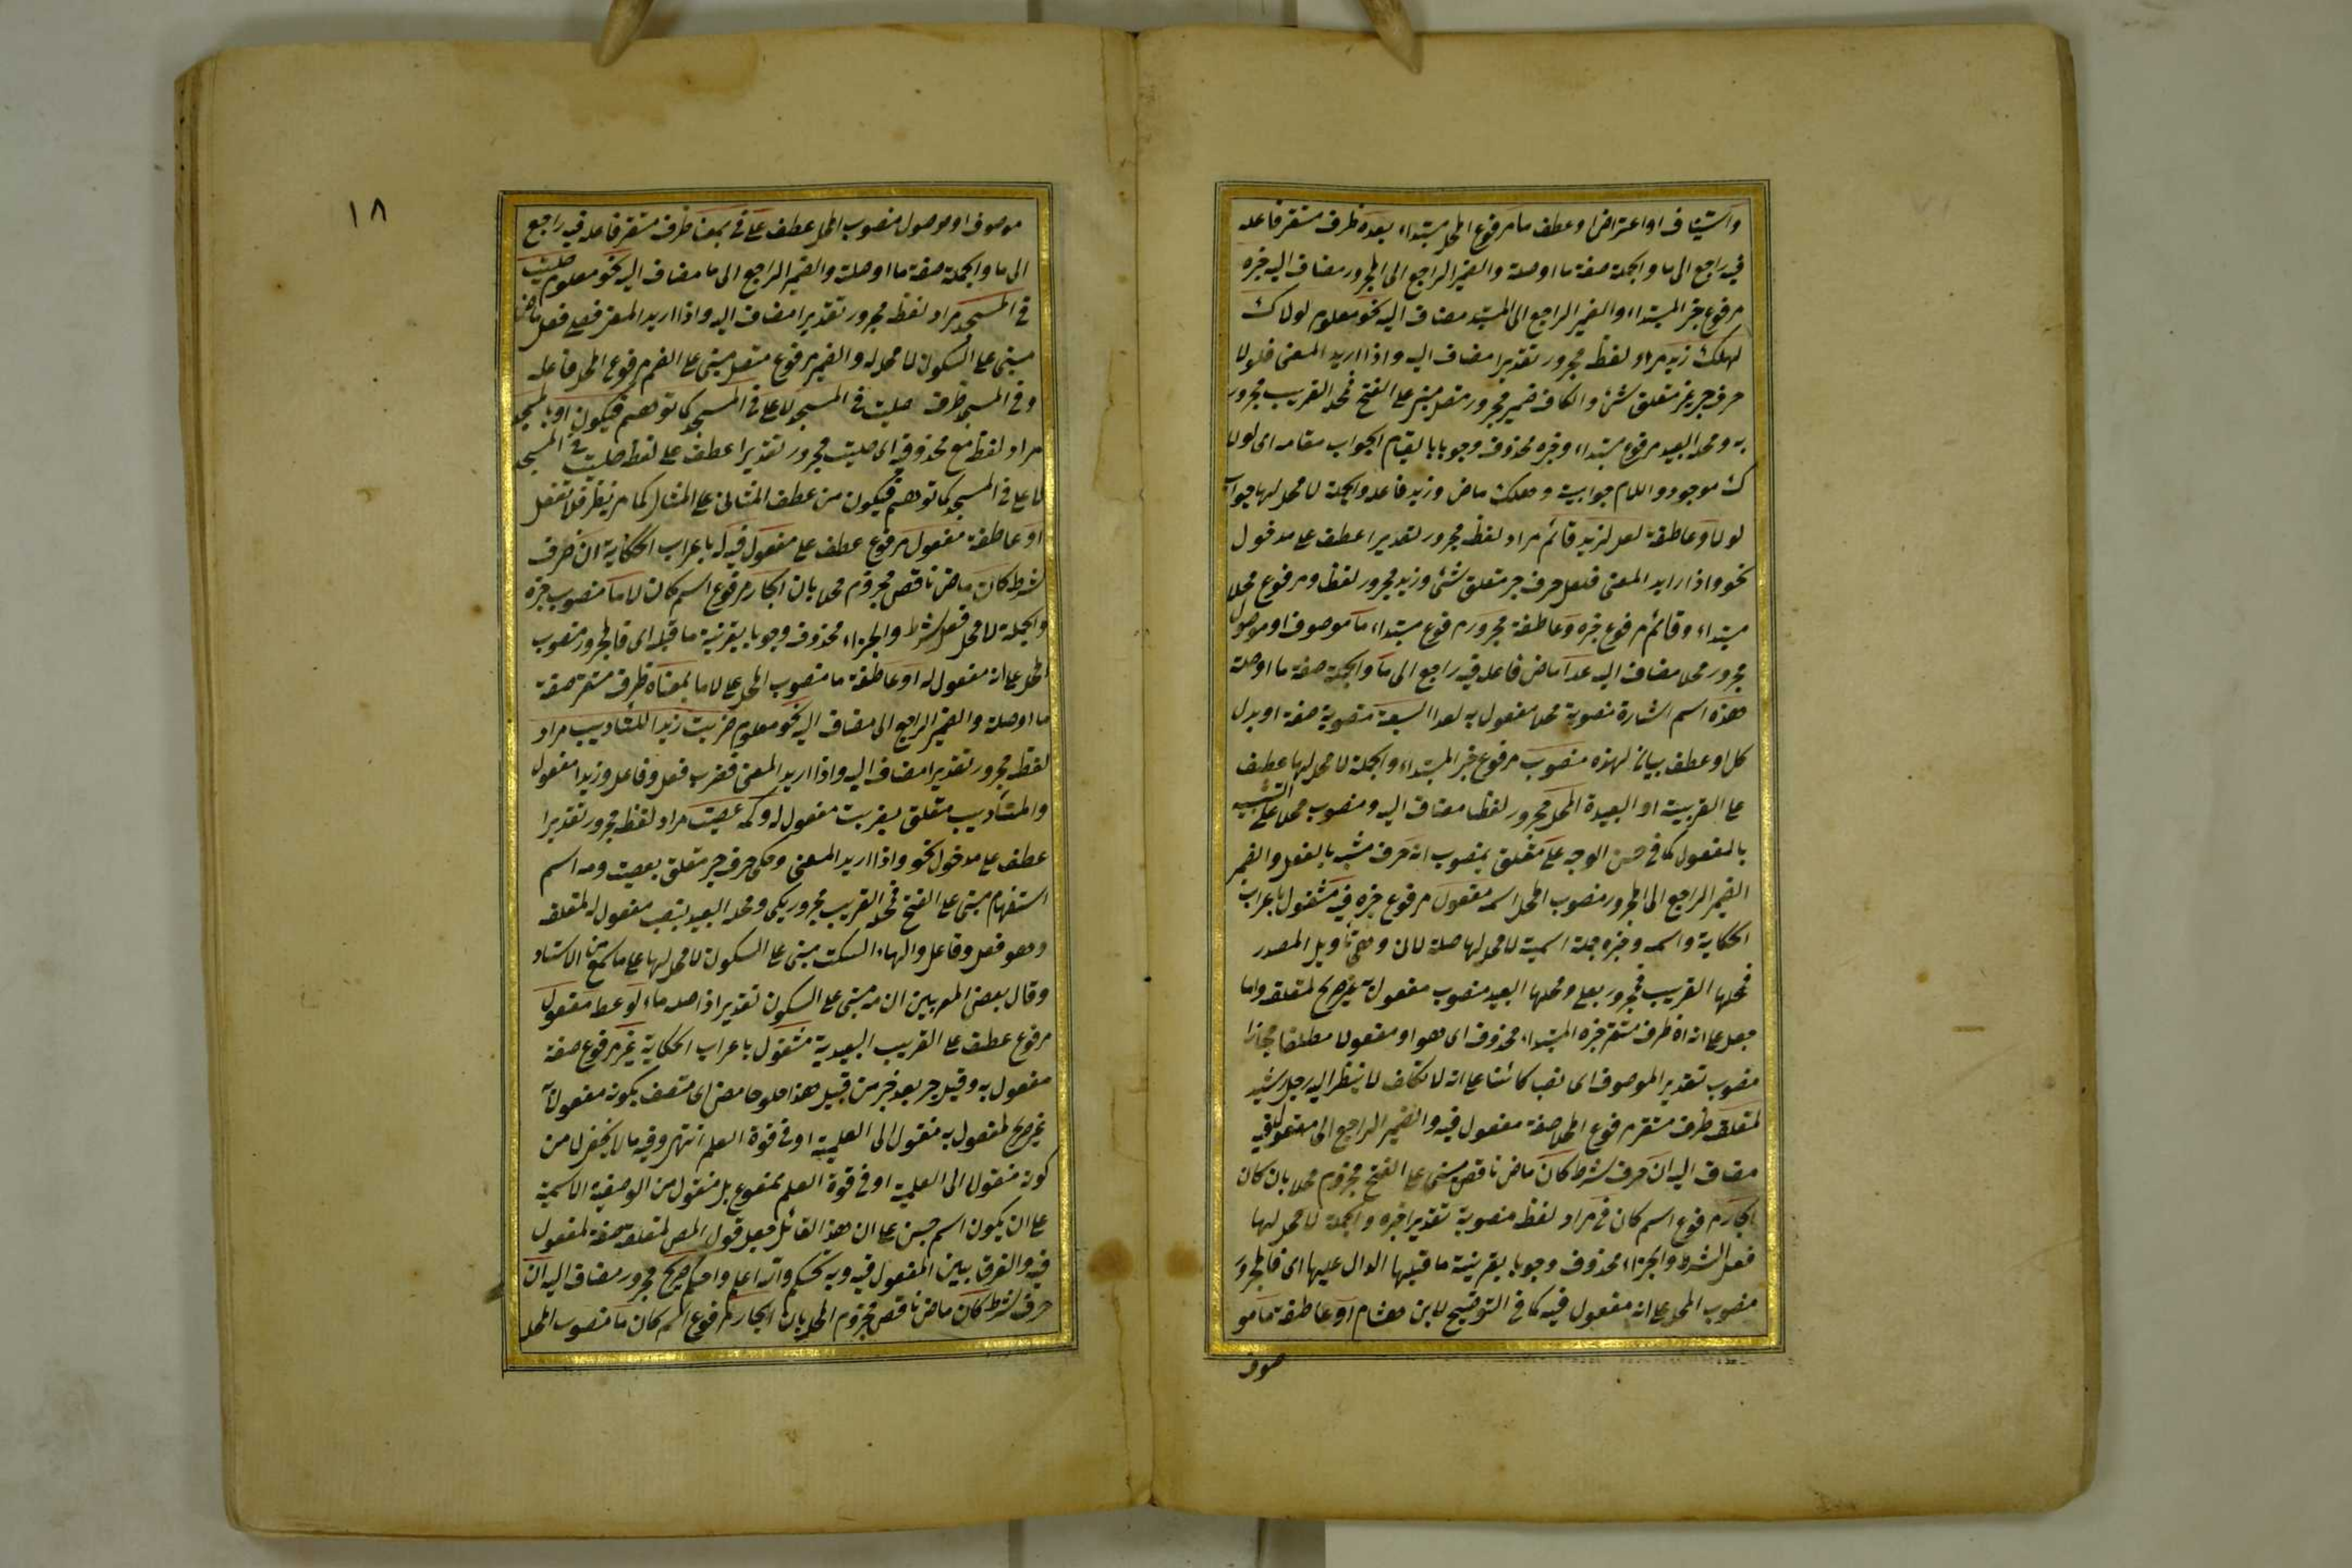 واستيناف او اعتراض او عطف ما مرفوع المحل مبتداء بعده ظرف مستقر فاعله
فيه راجع الى ما والجملة صفة ما او صلة والضمير الراجع الى المجرور مضاف اليه خبره
مرفوع خبر المبتداء والضمير الراجع الى المبتدا مضاف اليه نحو معلوم لولاك
لهلك زيد مراد لفظ مجرور تقديرا مضاف اليه واذا اريد المعنى فلولا
حرف جر غير متعلق بشئ والكاف ضمير مجرور متصل مبنى على الفتح فمحله القريب مجرور
به ومحله البعيد مرفوع مبتداء وخبره محذوف وجوبا بالقيام الجواب مقامه اى لولا
ك موجود واللام جوابية وهلك ماض وزيد فاعله والجملة لا محل لها جواب
لولا وعاطفة لعل لزيد قائم مراد لفظ مجرور تقديرا عطف على مدخول
نحو واذا اريد المعنى فلعل حرف جر متعلق شئ وزيد مجرور لفظا ومرفوع محلا
مبتداء وقائم مرفوع خبره وعاطفة مجرور مرفوع مبتداء ما موصوف او موصول
مجرور محلا مضاف اليه عدا ماض فاعله فيه راجع الى ما والجملة صفة ما او صلة
هذه اسم اشارة منصوبة محلا مفعول به لعدا السبعة منصوبة صفة او بدل
كل او عطف بيان لهذه منصوب مرفوع خبر المبتداء والجملة لا محل لها عطف
على القريبة او البعيدة المحل مجرور لفظا مضاف اليه ومنصوب محلا على التشبيه
بالمفعول كما فى حسن الوجه على متعلق بمنصوب انه حرف مشبه بالفعل والضمير
الضمير الراجع الى المجرور منصوب المحل اسمه مفعول مرفوع خبره فيه مشغول باعراب
الحكاية واسمه وخبره جملة اسمية لا محل لها صلة لان وهى تأويل المصدر
فمحلها القريب مجرور بعلى ومحلها البعيد منصوب مفعول به غير صريح لمتعلقه واما
جعل على انه ظرف مستقر خبره المبتداء محذوف اى هو او مفعولا مطلقا مجازا
منصوب تقدير الموصوف اى نصب كائنا على انه لا تكلف لا ينظر اليه رجل رشيد
لمتعلقه ظرف مستقر مرفوع المحل صفة مفعول فيه والضمير الراجع الى مفعول فيه
مضاف اليه ان حرف شرط كان ماض ناقص مبنى على الفتح مجزوم محلا بان كان
الجار مرفوع اسم كان فى مراد لفظ منصوبة تقديرا خبره والجملة لا محل لها
فعل الشرط والجزاء محذوف وجوبا بقرينة ما قبلها الدال عليها اى فالمجرور
منصوب المحل على انه مفعول فيه كما فى التوضيح لابن هشام او عاطفة ما مو
صوف
١٨
موصوف او موصول منصوب المحل عطف على فى بمعنا ظرف مستقر فاعله فيه راجع
الى ما والجملة صفة ما او صلة والضمير الراجع الى ما مضاف اليه نحو معلوم صليت
فى المسجد مراد لفظ مجرور تقديرا مضاف اليه واذا اريد المعنى فصلى فعل ماض
مبنى على السكون لا محل له والضمير مرفوع متصل مبنى على الضم مرفوع المحل فاعله
وفى المسجد ظرف صليت فى المسجد لا على فى المسجد كما توهم فيكون او بالمسجد
مراد لفظ مع محذوفه اى صليت مجرور تقديرا عطف على لفظ صليت فى المسجد
لا على فى المسجد كما توهم فيكون من عطف المثال على المثال كما مر نظيره فلا تغفل
او عاطفة مفعول مرفوع عطف على مفعول فيه له باعراب الحكاية ان حرف
شرط كان ماض ناقص مجزوم محلا بان الجار مرفوع اسم كان لا ما منصوب خبره
والجملة لا محل فعل شرط والجزاء محذوف وجوبا بقرينة ما قبله اى فالمجرور منصوب
المحل على انه مفعول له او عاطفة ما منصوب المحل على لا ما بمعناه ظرف مستقر صفة
ما او صلة والضمير الراجع الى مضاف اليه نحو معلوم ضربت زيدا للتأديب مراد
لفظه مجرور تقديرا مضاف اليه واذا اريد المعنى فضرب فعل وفاعل وزيدا مفعول
والتأديب متعلق بضربت مفعول له وكيمه عصيت مراد لفظه مجرور تقديرا
عطف على مدخول نحو واذا اريد المعنى وكى حرف جر متعلق بعصيت ومه اسم
استفهام مبنى على الفتح فمحله القريب مجرور بكى ومحله البعيد بنصب مفعول له لمتعلقه
وهو فعل وفاعل والهاء السكت مبنى على السكون لا محل لها على ما سمع من الاستاد
وقال بعض المعربين ان مه مبنى على السكون تقديرا اذ اصله ما او عطا مفعول
مرفوع عطف على القريب البعيدية مشغول باعراب الحكاية غير مرفوع صفة
مفعول به وقيل خبر بعد خبر من قبيل هذا حلو حامض اى متصف بكونه مفعولا
غير صريح لمفعول به منقول الى العلمية او فى قوة العلم انتهى وفيه ما لا يخفى لان من
كونه منقولا الى العلمية او فى قوة العلم ممنوع بل منقول من الوصفية الاسمية
على ان يكون اسم جنس على ان هذا القائل جعل قول المص لمتعلقه صفة لمفعول
فيه والفرق بين المفعول فيه وبه تحكم والله اعلم واحكم صريح مجرور مضاف اليه ان
حرف شرط كان ماض ناقص مجزوم المحل بان الجار مرفوع اسم كان ما منصوب المحل